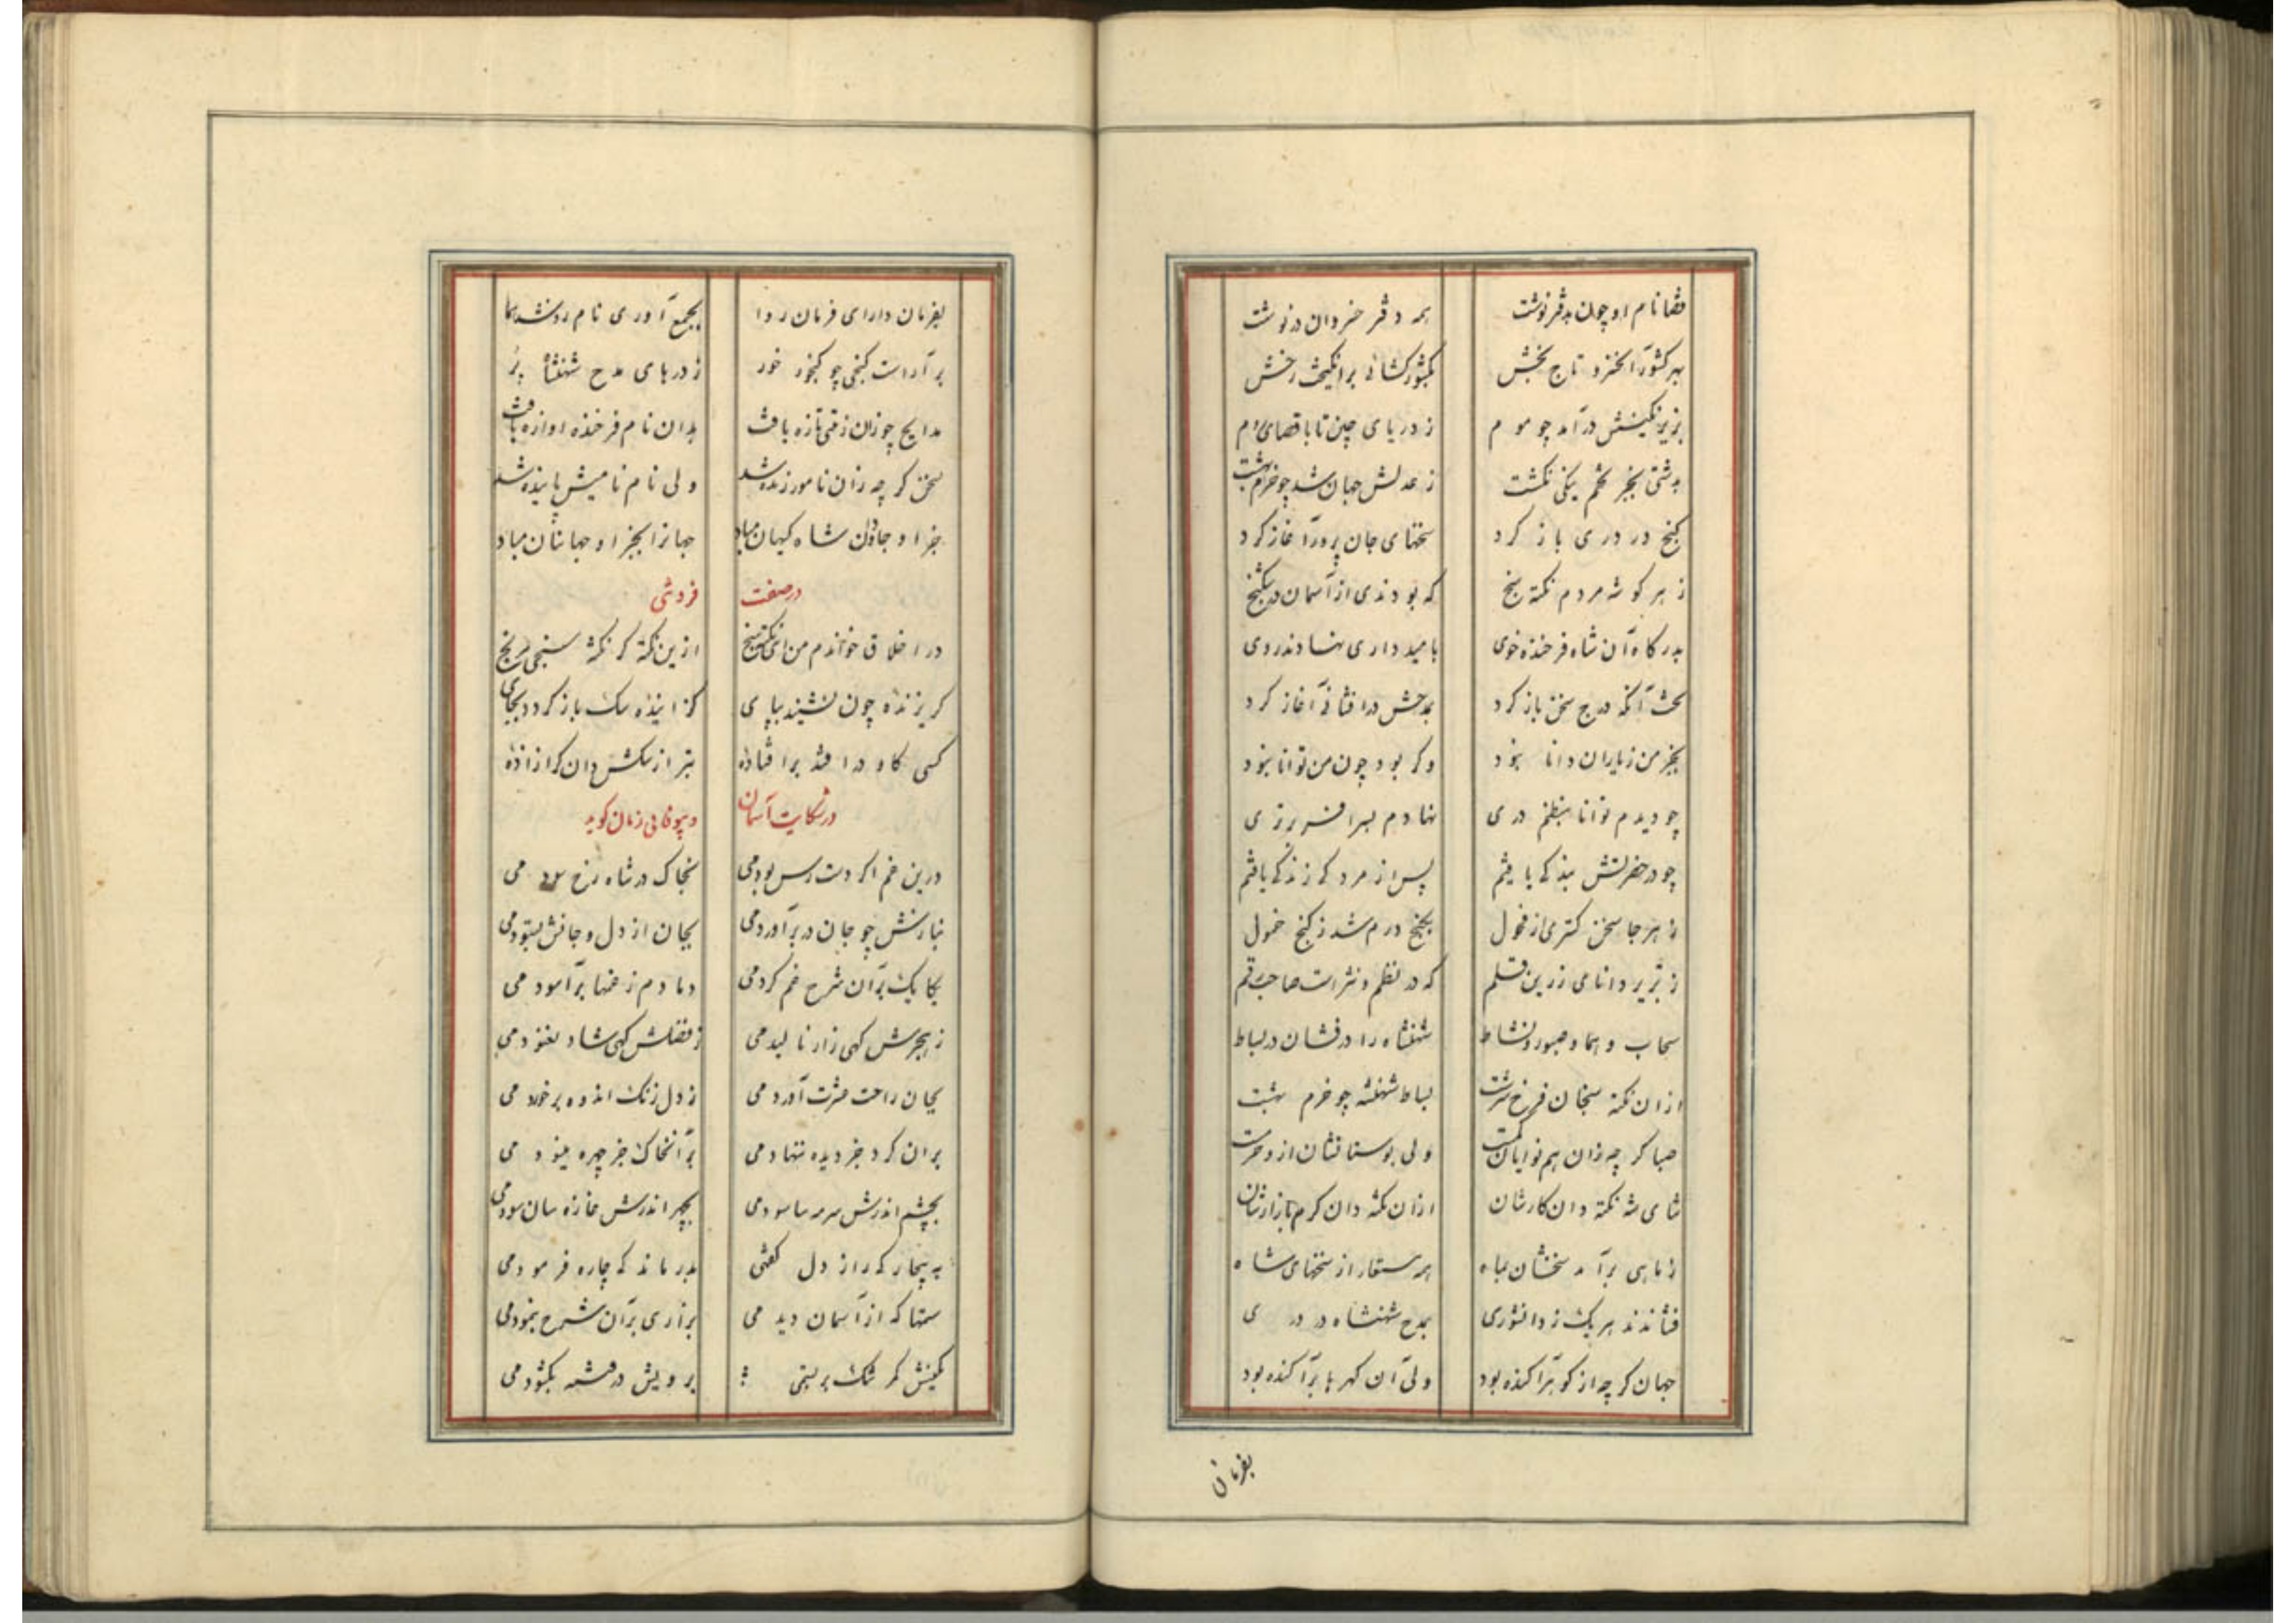 قضا نام او چون بدفتر نوشت همه دفتر خسروان درنوشت
بهر کشور آنخسرو تاج بخش بکشورکشائی برانگیخت رخش
بزیر نگینش درآمد چو موم ز دریای چین تا باقصای روم
بدشتی بجز تخم نیکی نکشت ز عدلش جهان شد چو خرم بهشت
کنج در دری باز کرد سخنهای جان پرور آغاز کرد
ز هر گوشه مردم نکته سنج که بودندی از آسمان در شکنج
بدرگاه آن شاه فرخنده خوی بامیدواری نهادند روی
نخست آنکه درج سخن باز کرد بمدحش درافشانی آغاز کرد
بجز من ز یاران دانا نبود وگر بود چون من توانا نبود
چو دیدم توانا بنظم دری نهادم بسر افسر برتری
چو در حضرتش بندگی یافتم پس از مردگی زندگی یافتم
ز هر جا سخن گستری از فحول بگنج درم شد ز کنج خمول
ز دانای زرین قلم که در نظم و نثر است صاحب رقم
سحاب و هما و صبور و نشاط شهنشاه را درفشان در بساط
از آن نکته سنجان فرخ سرشت بساط شهنشه چو خرم بهشت
صبا گر چه زان هم نوایان کمست ولی بوستانشان ازو خرمست
ثنای شه نکته دان کارشان از آن نکته دان گرم بازارشان
ز ماهی برآمد سخنشان بماه همه مستعار از سخنهای شاه
فشاندند هر یک ز دانشوری بمدح شهنشاه در دری
جهان گر چه از گوهر آکنده بود ولی آن گهرها پراکنده بود
بفرمان
بفرمان دارای فرمان روا بجمع آوری نام زد شد هما
برآراست گنجی چو گنجور خور ز درهای مدح شهنشاه پر
مدایح چو زان زینتی تازه یافت بدان نام فرخنده آوازه یافت
سخن گر چه زان نامور زنده شد ولی نام نامیش پاینده شد
جز او جاودان شاه کیهان مباد جهانرا بجز او جهانبان مباد
در صفت فردستی
در اخلاق خواندم من ای نکته سنج ازین نکته گر نکته سنجی مرنج
گریزنده چون نشیند بپای گزاینده سگ باز گردد بجای
کسی کاو درافتد برافتاده بتر از سگش دان گر آزاده
در شکایت آسمان و بیوفایی زمان گوید
درین غم اگر دست رس بودمی بخاک در شاه رخ سودمی
نیازش چو جان در بر آوردمی بجان از دل و جانش بستودمی
یکایک بر آن شرح غم کردمی دمادم ز غمها برآسودمی
ز هجرش کهی زار نالیدمی ز فضلش کهی شاد بغنودمی
بجان راحت عشرت آوردمی ز دل زنگ اندوه بزدودمی
بران کرد جز دیده ننهادمی بر آنخاک جز چهره ننمودمی
بچشم اندرش سرمه سا سودمی بچهر اندرش غازه سان سودمی
به بیچارکی راز دل گفتمی بدرماندگی چاره فرمودمی
ستمها که از آسمان دیدمی بزاری بر آن شرح بنمودمی
بکینش کمر تنگ بر بستمی برویش در فتنه بگشودمی